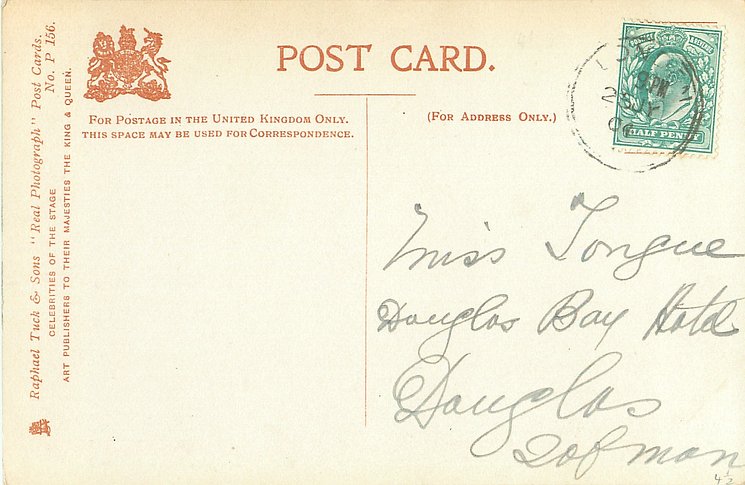 POST CARD.
FOR POSTAGE IN THE UNITED KINGDOM ONLY.
THIS SPACE MAY BE USED FOR CORRESPONDENCE.
(FOR ADDRESS ONLY.)
HALF PENNY
Raphael Tuck & Sons "Real Photograph" Post Cards.
No. P 156.
CELEBRITIES OF THE STAGE
ART PUBLISHERS TO THEIR MAJESTIES THE KING & QUEEN.
Miss Tongue
Douglas Bay Hotel
Douglas
I of man
4½